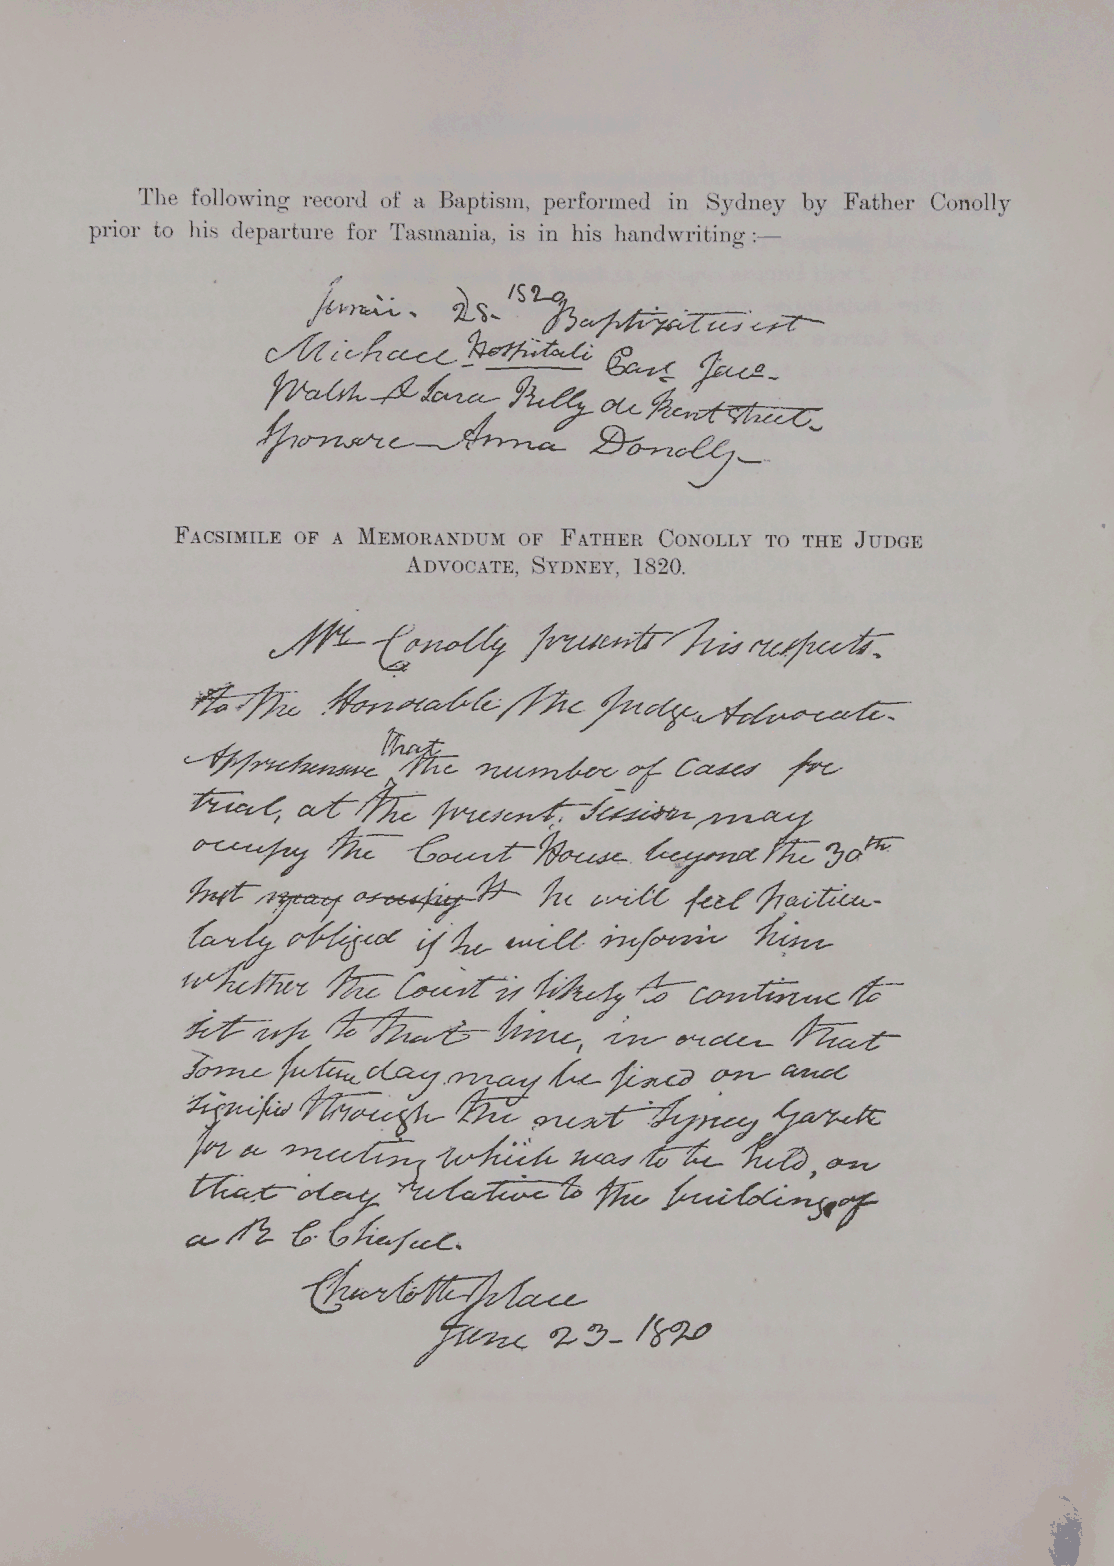 The following record of a Baptism, performed in Sydney by Father Conolly
prior to his departure for Tasmania, is in his handwriting:—
Junii. 28. 1820 Baptizatus est
Michael Hospitali
Walsh & Sara Reilly de Kent Street.
Sponsore — Anna Donolly —
FACSIMILE OF A MEMORANDUM OF FATHER CONOLLY TO THE JUDGE
ADVOCATE, SYDNEY, 1820.
Mr Conolly presents his respects.
to the Honorable the Judge Advocate.
Apprehensive that the number of cases for
trial, at the present Session may
occupy the Court House beyond the 30th
Inst may occupy it he will feel particu-
larly obliged if he will inform him
whether the Court is likely to continue to
sit up to that time, in order that
some future day may be fixed on and
signified through the next Sydney Gazette
for a meeting which was to be held, on
that day relative to the building of
a R C Chapel.
Charlotte place
June 23 - 1820